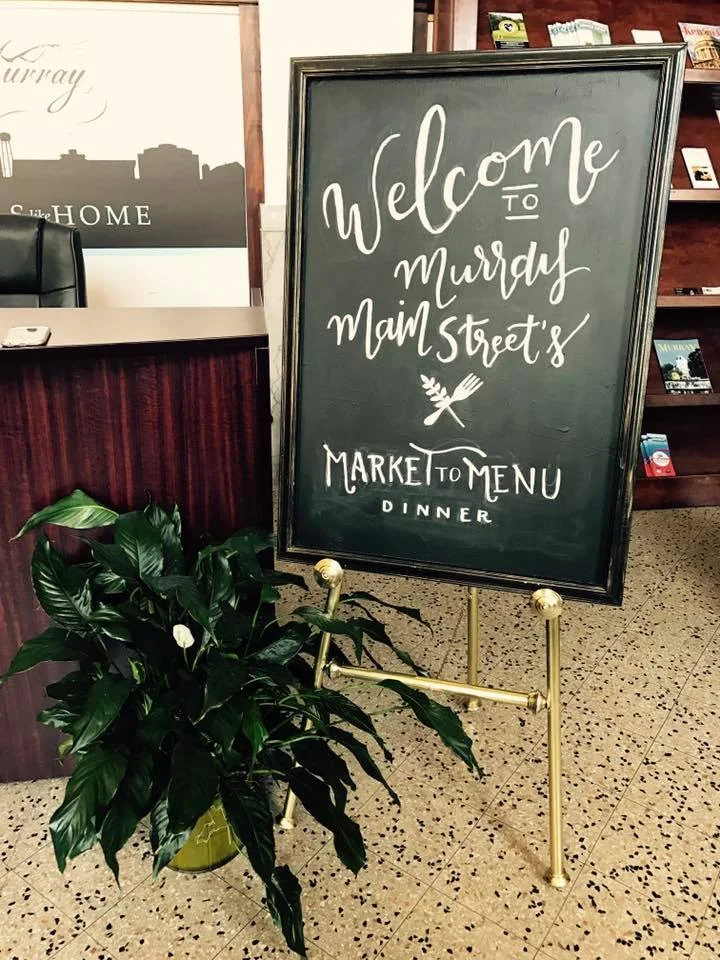 Murray
like HOME
Welcome
TO
Murray
Main Street's
MARKET TO MENU
DINNER
MURRAY